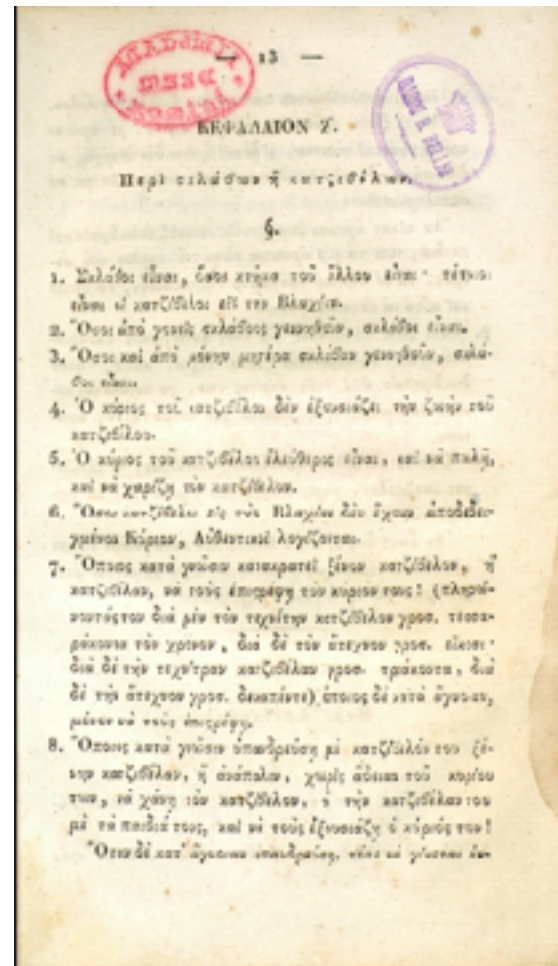 — 13 —
ΚΕΦΑΛΑΙΟΝ Ζ.
Περὶ σκλάβων ἢ κατζιβέλων.
§.
1. Σκλάβοι εἶναι, ὅσοι κτῆμα τοῦ ἄλλου εἶναι· τέτοιοι
εἶναι οἱ κατζίβελοι εἰς τὴν Βλαχίαν.
2. Ὅσοι ἀπὸ γονεῖς σκλάβους γεννηθοῦν, σκλάβοι εἶναι.
3. Ὅσοι καὶ ἀπὸ μόνην μητέρα σκλάβαν γεννηθοῦν, σκλά-
βοι εἶναι.
4. Ὁ κύριος τοῦ κατζιβέλου δὲν ἐξουσιάζει τὴν ζωὴν τοῦ
κατζιβέλου.
5. Ὁ κύριος τοῦ κατζιβέλου ἐλεύθερος εἶναι, καὶ νὰ πωλῇ,
καὶ νὰ χαρίζῃ τὸν κατζίβελον.
6. Ὅσοι κατζίβελοι εἰς τὴν Βλαχίαν δὲν ἔχουν ἀποδεδειγ-
γμένον Κύριον, Αὐθεντικοὶ λογίζονται.
7. Ὅποιος κατὰ γνῶσιν κατακρατεῖ ξένον κατζίβελον, ἢ
κατζιβέλαν, νὰ τοὺς ἐπιστρέφῃ τὸν κύριόν τους! (πληρώ-
νοντάς του διὰ μὲν τὸν τεχνίτην κατζίβελον γροσ. τεσσα-
ράκοντα τὸν χρόνον, διὰ δὲ τὸν ἄτεχνον γροσ. εἴκοσι·
διὰ δὲ τὴν τεχνίτραν κατζιβέλαν γροσ. τριάκοντα, διὰ
δὲ τὴν ἄτεχνον γροσ. δεκαπέντε) ὅποιος δὲ κατὰ ἄγνοιαν,
μόνον νὰ τοὺς ἐπιστρέφῃ.
8. Ὅποιος κατὰ γνῶσιν ὑπανδρεύσῃ μὲ κατζίβελόν του ξέ-
νην κατζιβέλαν, ἢ ἀνάπαλιν, χωρὶς ἄδειαν τοῦ κυρίου
των, νὰ χάνῃ τὸν κατζίβελον, ἢ τὴν κατζιβέλαν του
μὲ τὰ παιδιά τους, καὶ νὰ τοὺς ἐξουσιάζῃ ὁ κύριός του!
Ὅταν δὲ κατ' ἄγνοιαν ὑπανδρεύσῃ, τότε νὰ γίνεται